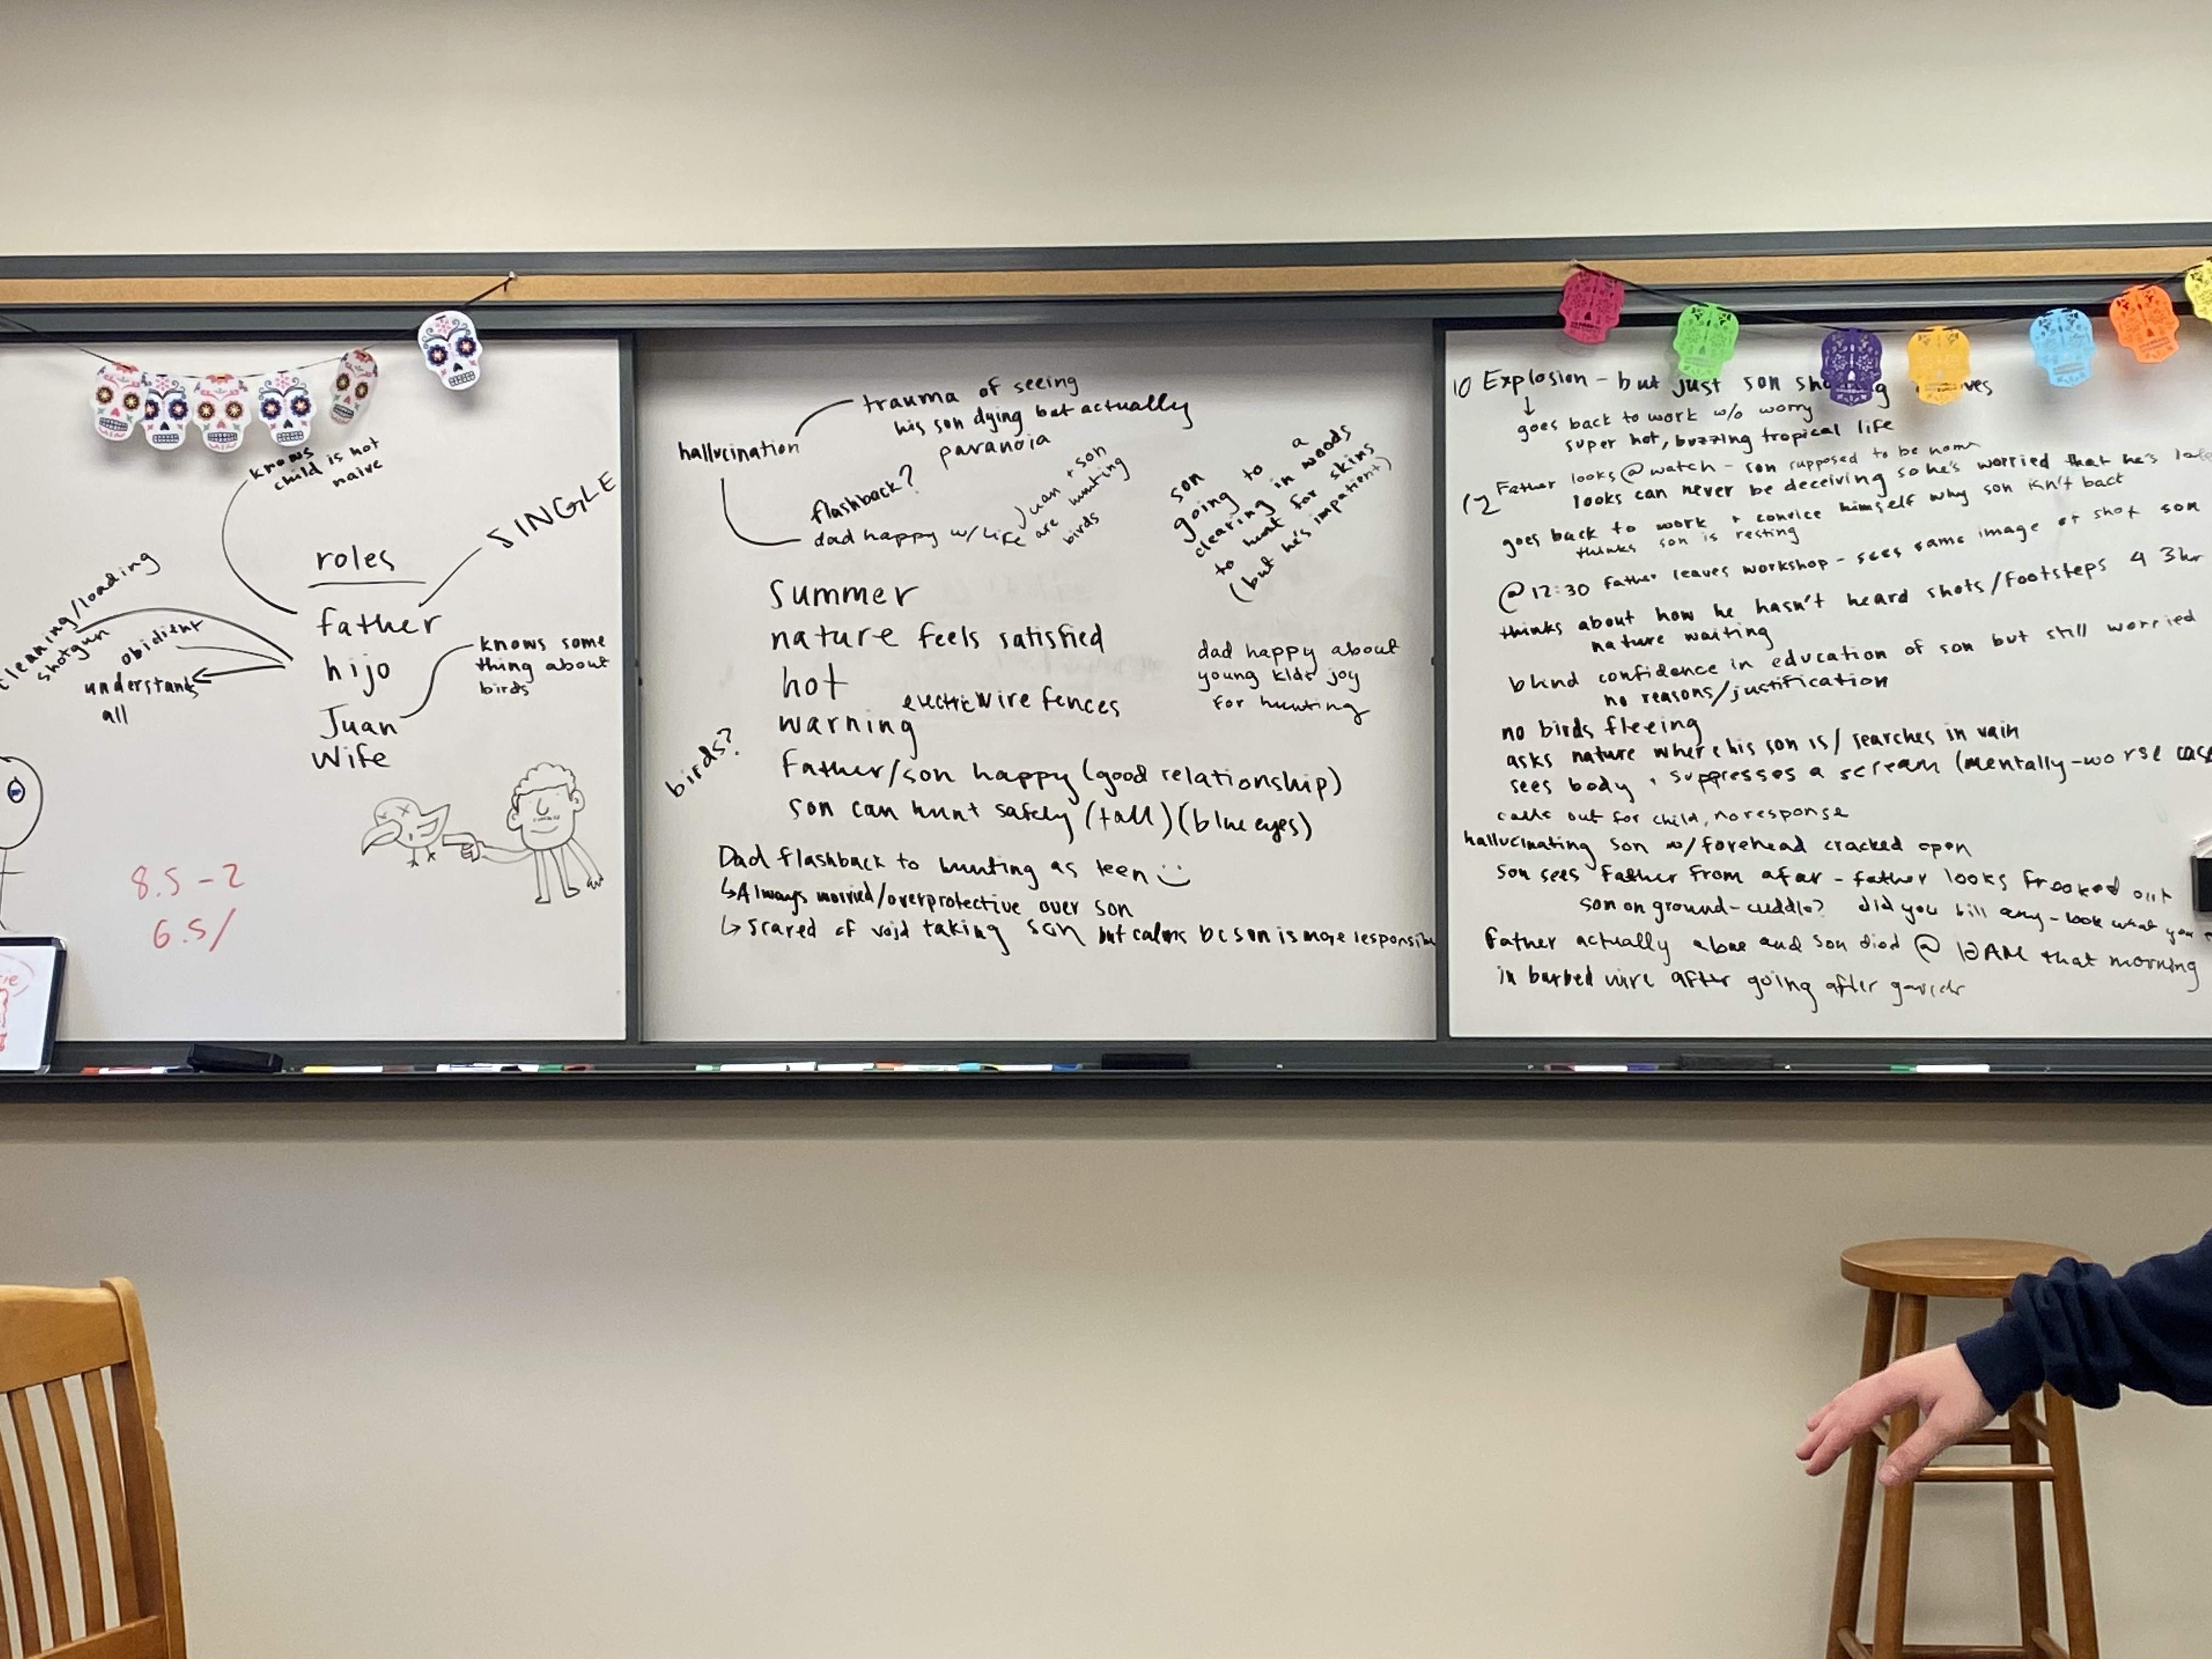 knows
child is not
naive
SINGLE
roles
father
hijo
Juan
Wife
cleaning/loading
shotgun
obidient
understants
all
knows some
thing about
birds
8.5-2
6.5/
hallucination
trauma of seeing
his son dying but actually
paranoia
flashback?
dad happy w/ life
Juan + son
are hunting
birds
son
going to a
clearing in woods
to hunt for skins
(but he's impatient)
Summer
nature feels satisfied
hot
electric wire fences
warning
birds?
father/son happy (good relationship)
son can hunt safely (tall) (blue eyes)
dad happy about
young kids joy
for hunting
Dad flashback to hunting as teen :)
↳ Always worried/overprotective over son
↳ scared of void taking son but calms bc son is more responsible
10 Explosion - but just son
↓
goes back to work w/o worry
super hot, buzzing tropical life
12 Father looks @ watch - son supposed to be home
looks can never be deceiving so he's worried that he's late
goes back to work + convice himself why son isn't back
thinks son is resting
@ 12:30 father leaves workshop - sees same image of shot son
thinks about how he hasn't heard shots/footsteps 4 3hr
nature waiting
blind confidence in education of son but still worried
no reasons/justification
no birds fleeing
asks nature where his son is/ searches in vain
sees body, suppresses a scream (mentally-worse case
calls out for child, no response
hallucinating son w/ forehead cracked open
son sees father from afar - father looks freaked out
son on ground-cuddle? did you kill any - look what you
father actually alone and son died @ 10AM that morning
in barbed wire after going after